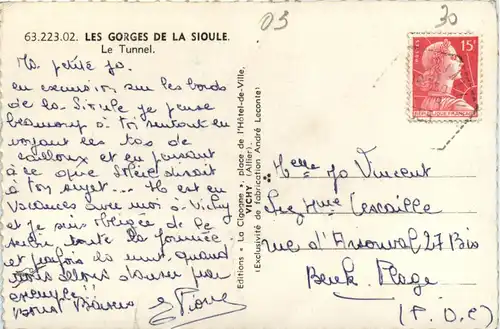 03
30
63.223.02. LES GORGES DE LA SIOULE.
Le Tunnel.
Ma petite Jo.
en excursion sur les bords
de la Sioule je pense
beaucoup à toi surtout en
voyant les tas de
cailloux et en pensant
à ce que disait
à ton sujet... Il est en
vacances avec moi à Vichy
et je suis obligée de le
toute la journée
et parfois la nuit, quand
nous allons danser par
exemple !!
Bons Baisers
Editions " La Cigogne ", place de l'Hôtel-de-Ville,
VICHY (Allier)
(Exclusivité de fabrication André Leconte)
POSTES
15F
REPUBLIQUE FRANÇAISE
Melle Jo Vincent
Lescaille
rue d'Arsonval 27 Bis
Berck Plage
(P.D.C)